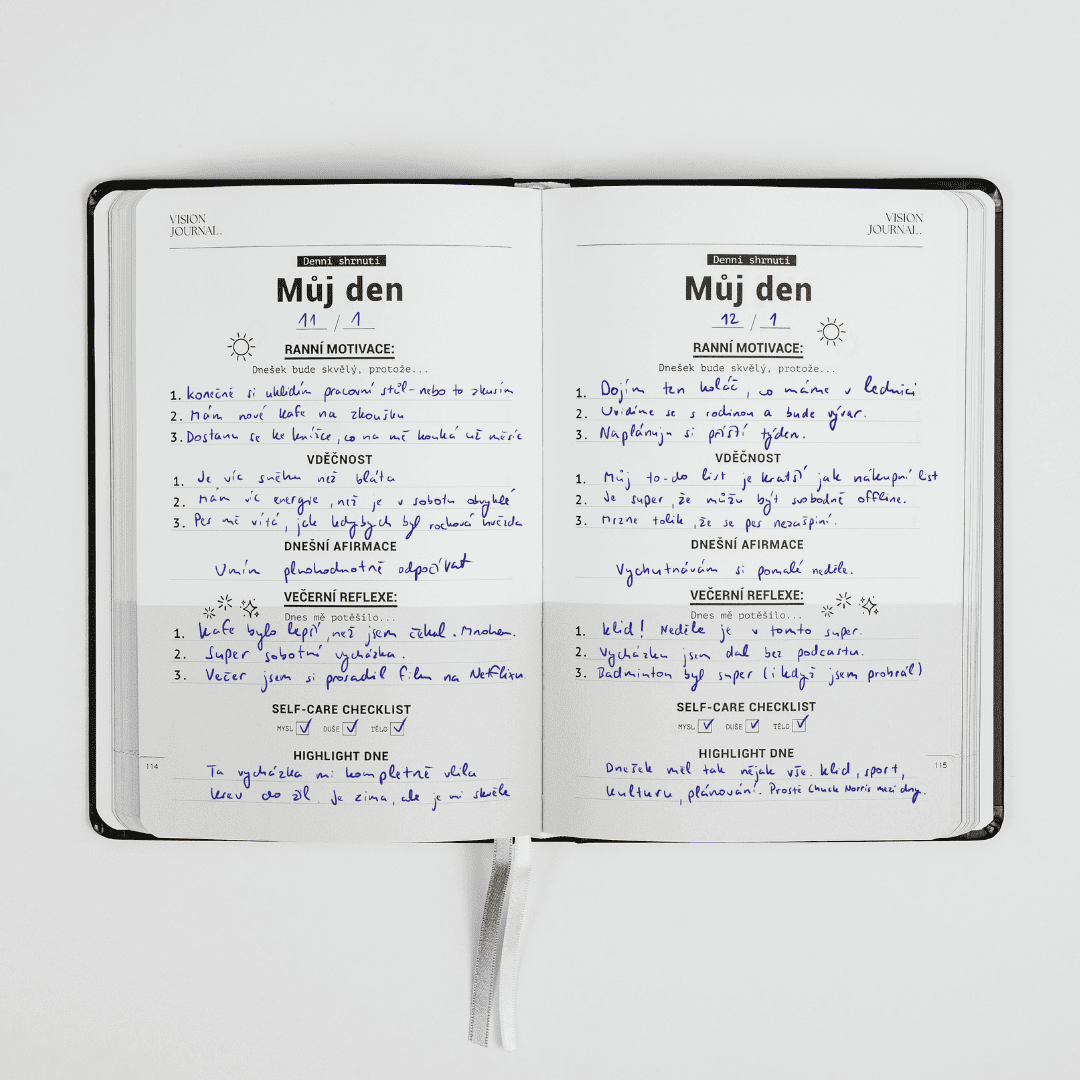 VISION
JOURNAL.
Denní shrnutí
Můj den
11 / 1
RANNÍ MOTIVACE:
Dnešek bude skvělý, protože...
1. Konečně si uklidím pracovní stůl - nebo to zkusím
2. Mám nové kafe na zkoušku
3. Dostanu se ke knížce, co na mě kouká už měsíc
VDĚČNOST
1. Je víc sněhu než bláta
2. Mám víc energie, než je v sobotu obvyklé
3. Pes mě vítá, jak kdybych byl rocková hvězda
DNEŠNÍ AFIRMACE
Umím plnohodnotně odpočívat
VEČERNÍ REFLEXE:
Dnes mě potěšilo...
1. Kafe bylo lepší, než jsem čekal. Mnohem.
2. Super sobotní vycházka.
3. Večer jsem si prosadil film na Netflixu
SELF-CARE CHECKLIST
MYSL DUŠE TĚLO
HIGHLIGHT DNE
Ta vycházka mi kompletně vlila
krev do žil. Je zima, ale je mi skvěle
114
VISION
JOURNAL.
Denní shrnutí
Můj den
12 / 1
RANNÍ MOTIVACE:
Dnešek bude skvělý, protože...
1. Dojím ten koláč, co máme v lednici
2. Uvidíme se s rodinou a bude vývar.
3. Naplánuju si příští týden.
VDĚČNOST
1. Můj to-do list je kratší jak nákupní list
2. Je super, že můžu být svobodně offline.
3. Mrzne tolik, že se pes nezašpiní.
DNEŠNÍ AFIRMACE
Vychutnávám si pomalé neděle.
VEČERNÍ REFLEXE:
Dnes mě potěšilo...
1. Klid! Neděle je v tomto super.
2. Vycházku jsem dal bez podcastu.
3. Badminton byl super (i když jsem probrál)
SELF-CARE CHECKLIST
MYSL DUŠE TĚLO
HIGHLIGHT DNE
Dnešek měl tak nějak vše. Klid, sport,
kulturu, plánování. Prostě Chuck Norris mezi dny.
115